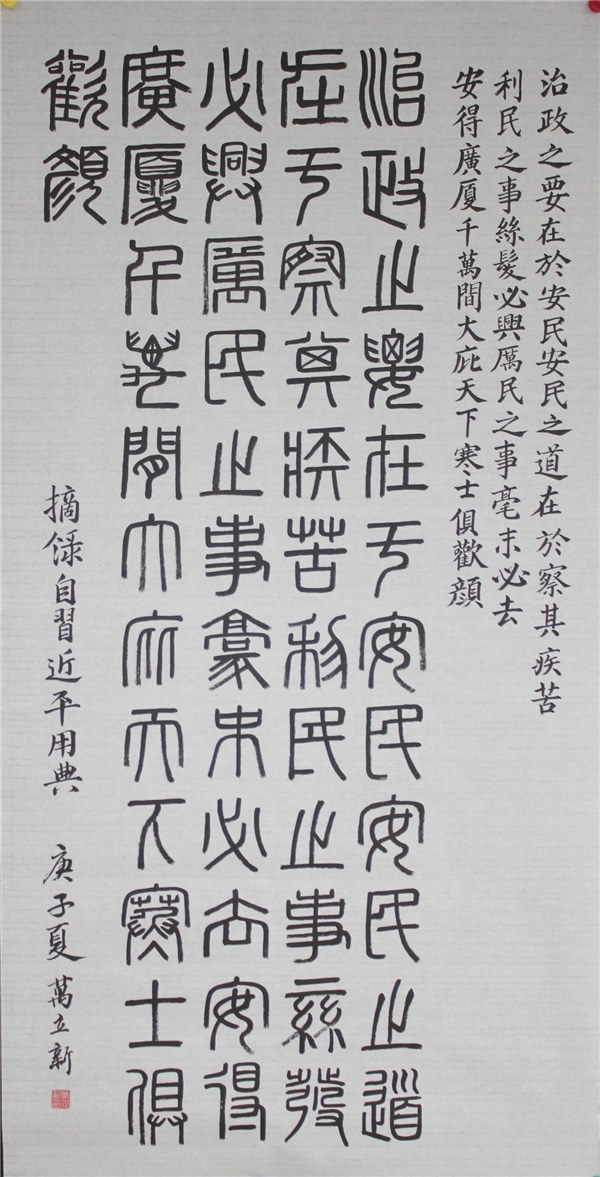 治政之要在於安民安民之道在於察其疾苦
利民之事絲髮必興厲民之事毫末必去
安得廣厦千萬間大庇天下寒士俱歡顔
治政之要在于安民安民之道
在于察其疾苦利民之事絲髮
必興厲民之事豪末必去安得
廣廈千萬間大庇天下寒士俱
歡顔
摘録自習近平用典 庚子夏 萬立新